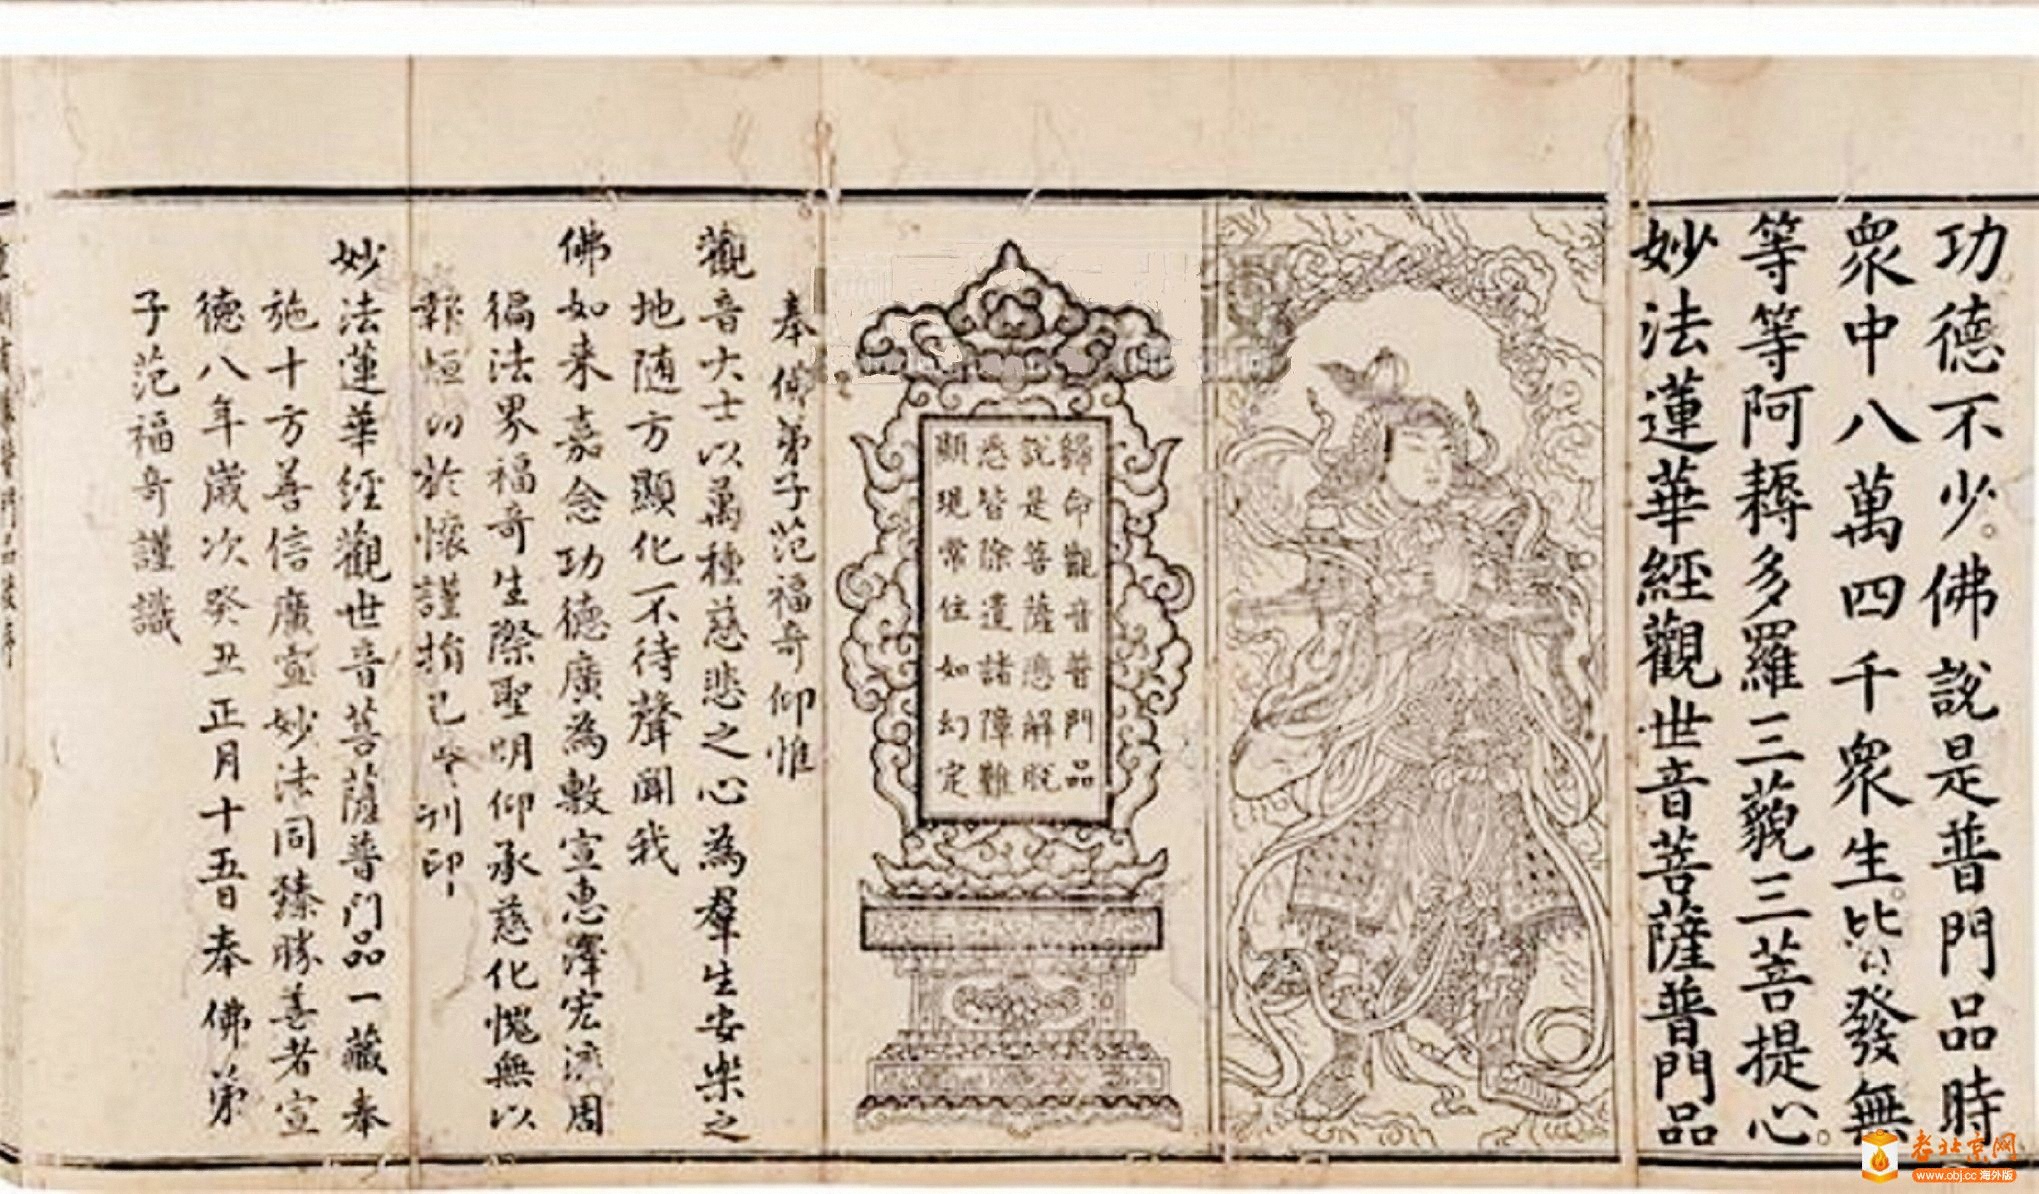 功德不少。佛說是普門品時
衆中八萬四千衆生。皆發無
等等阿耨多羅三藐三菩提心。
妙法蓮華經觀世音菩薩普門品
歸命觀音普門品
說是菩薩悉解脫
悉皆除遣諸障難
顯現常住如幻定
奉佛弟子范福奇仰惟
觀音大士以萬種慈悲之心為羣生安樂之
地随方顯化不待聲聞我
佛如来嘉念功德廣為敷宣惠澤宏流周
徧法界福奇生際聖明仰承慈化愧無以
報恒切於懷謹捐己刊印
妙法蓮華經觀世音菩薩普門品一藏奉
施十方善信廣宣妙法同臻勝善者宣
德八年歲次癸丑正月十五日奉佛弟
子范福奇謹識
老北京网
www.obj.cc 海外版